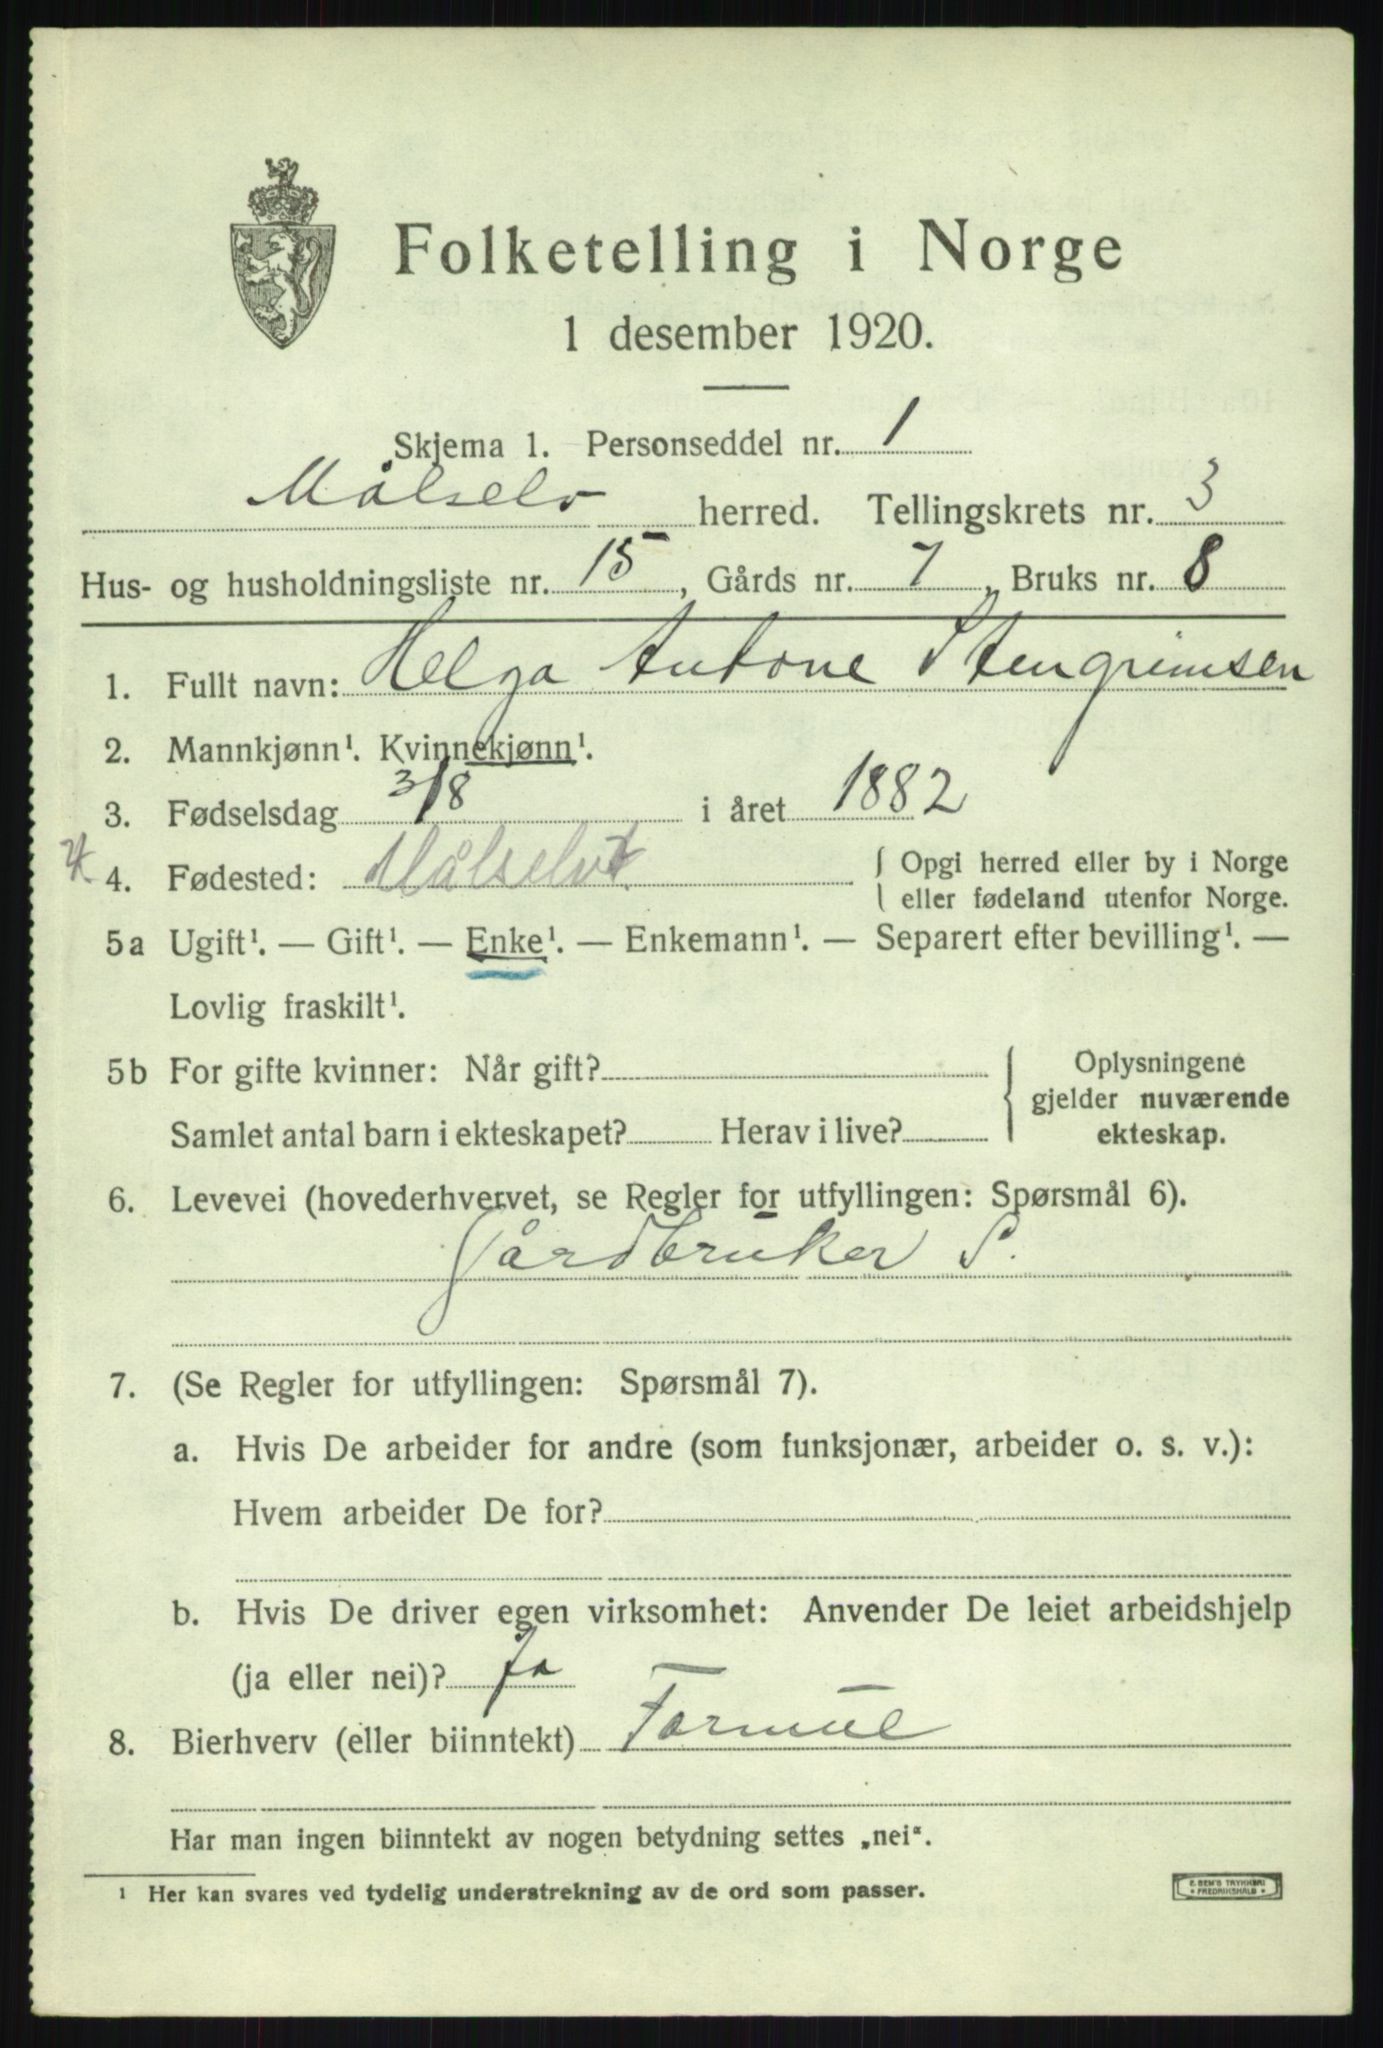 Folketelling i Norge
1 desember 1920.
Skjema 1. Personseddel nr. 1
Målselv herred. Tellingskrets nr. 3
Hus- og husholdningsliste nr. 15, Gårds nr. 7, Bruks nr. 8
1. Fullt navn: Helga Antone Stengrimsen
2. Mannkjønn¹. Kvinnekjønn¹.
3. Fødselsdag 3/8 i året 1882
4. Fødested: Målselv { Opgi herred eller by i Norge
eller fødeland utenfor Norge.
5a Ugift¹. — Gift¹. — Enke¹. — Enkemann¹. — Separert efter bevilling¹. —
Lovlig fraskilt¹.
5b For gifte kvinner: Når gift? { Oplysningene
gjelder nuværende
Samlet antal barn i ekteskapet? Herav i live? ekteskap.
6. Levevei (hovederhvervet, se Regler for utfyllingen: Spørsmål 6).
Gårdbruker S.
7. (Se Regler for utfyllingen: Spørsmål 7).
a. Hvis De arbeider for andre (som funksjonær, arbeider o. s. v.):
Hvem arbeider De for?
b. Hvis De driver egen virksomhet: Anvender De leiet arbeidshjelp
(ja eller nei)? Ja
8. Bierhverv (eller biinntekt) Formue
Har man ingen biinntekt av nogen betydning settes „nei".
¹ Her kan svares ved tydelig understrekning av de ord som passer.
E. SEM'S TRYKKERI
• FREDRIKSHALD •